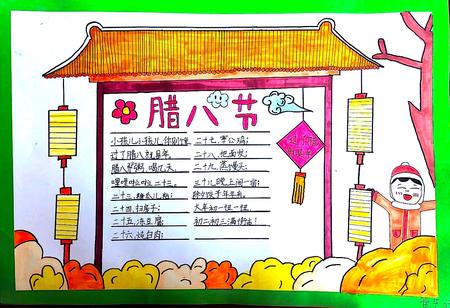 腊八节
小孩儿小孩儿你别馋
过了腊八就是年。
腊八粥,喝几天,
哩哩啦啦二十三。
二十三,糖瓜儿粘;
二十四,扫房子;
二十五,冻豆腐;
二十六,炖白肉;
二十七,宰公鸡;
二十八,把面发;
二十九,蒸馒头;
三十儿晚上闹一宿;
除夕饺子年年有。
大年初一扭一扭,
初二初三满街走!